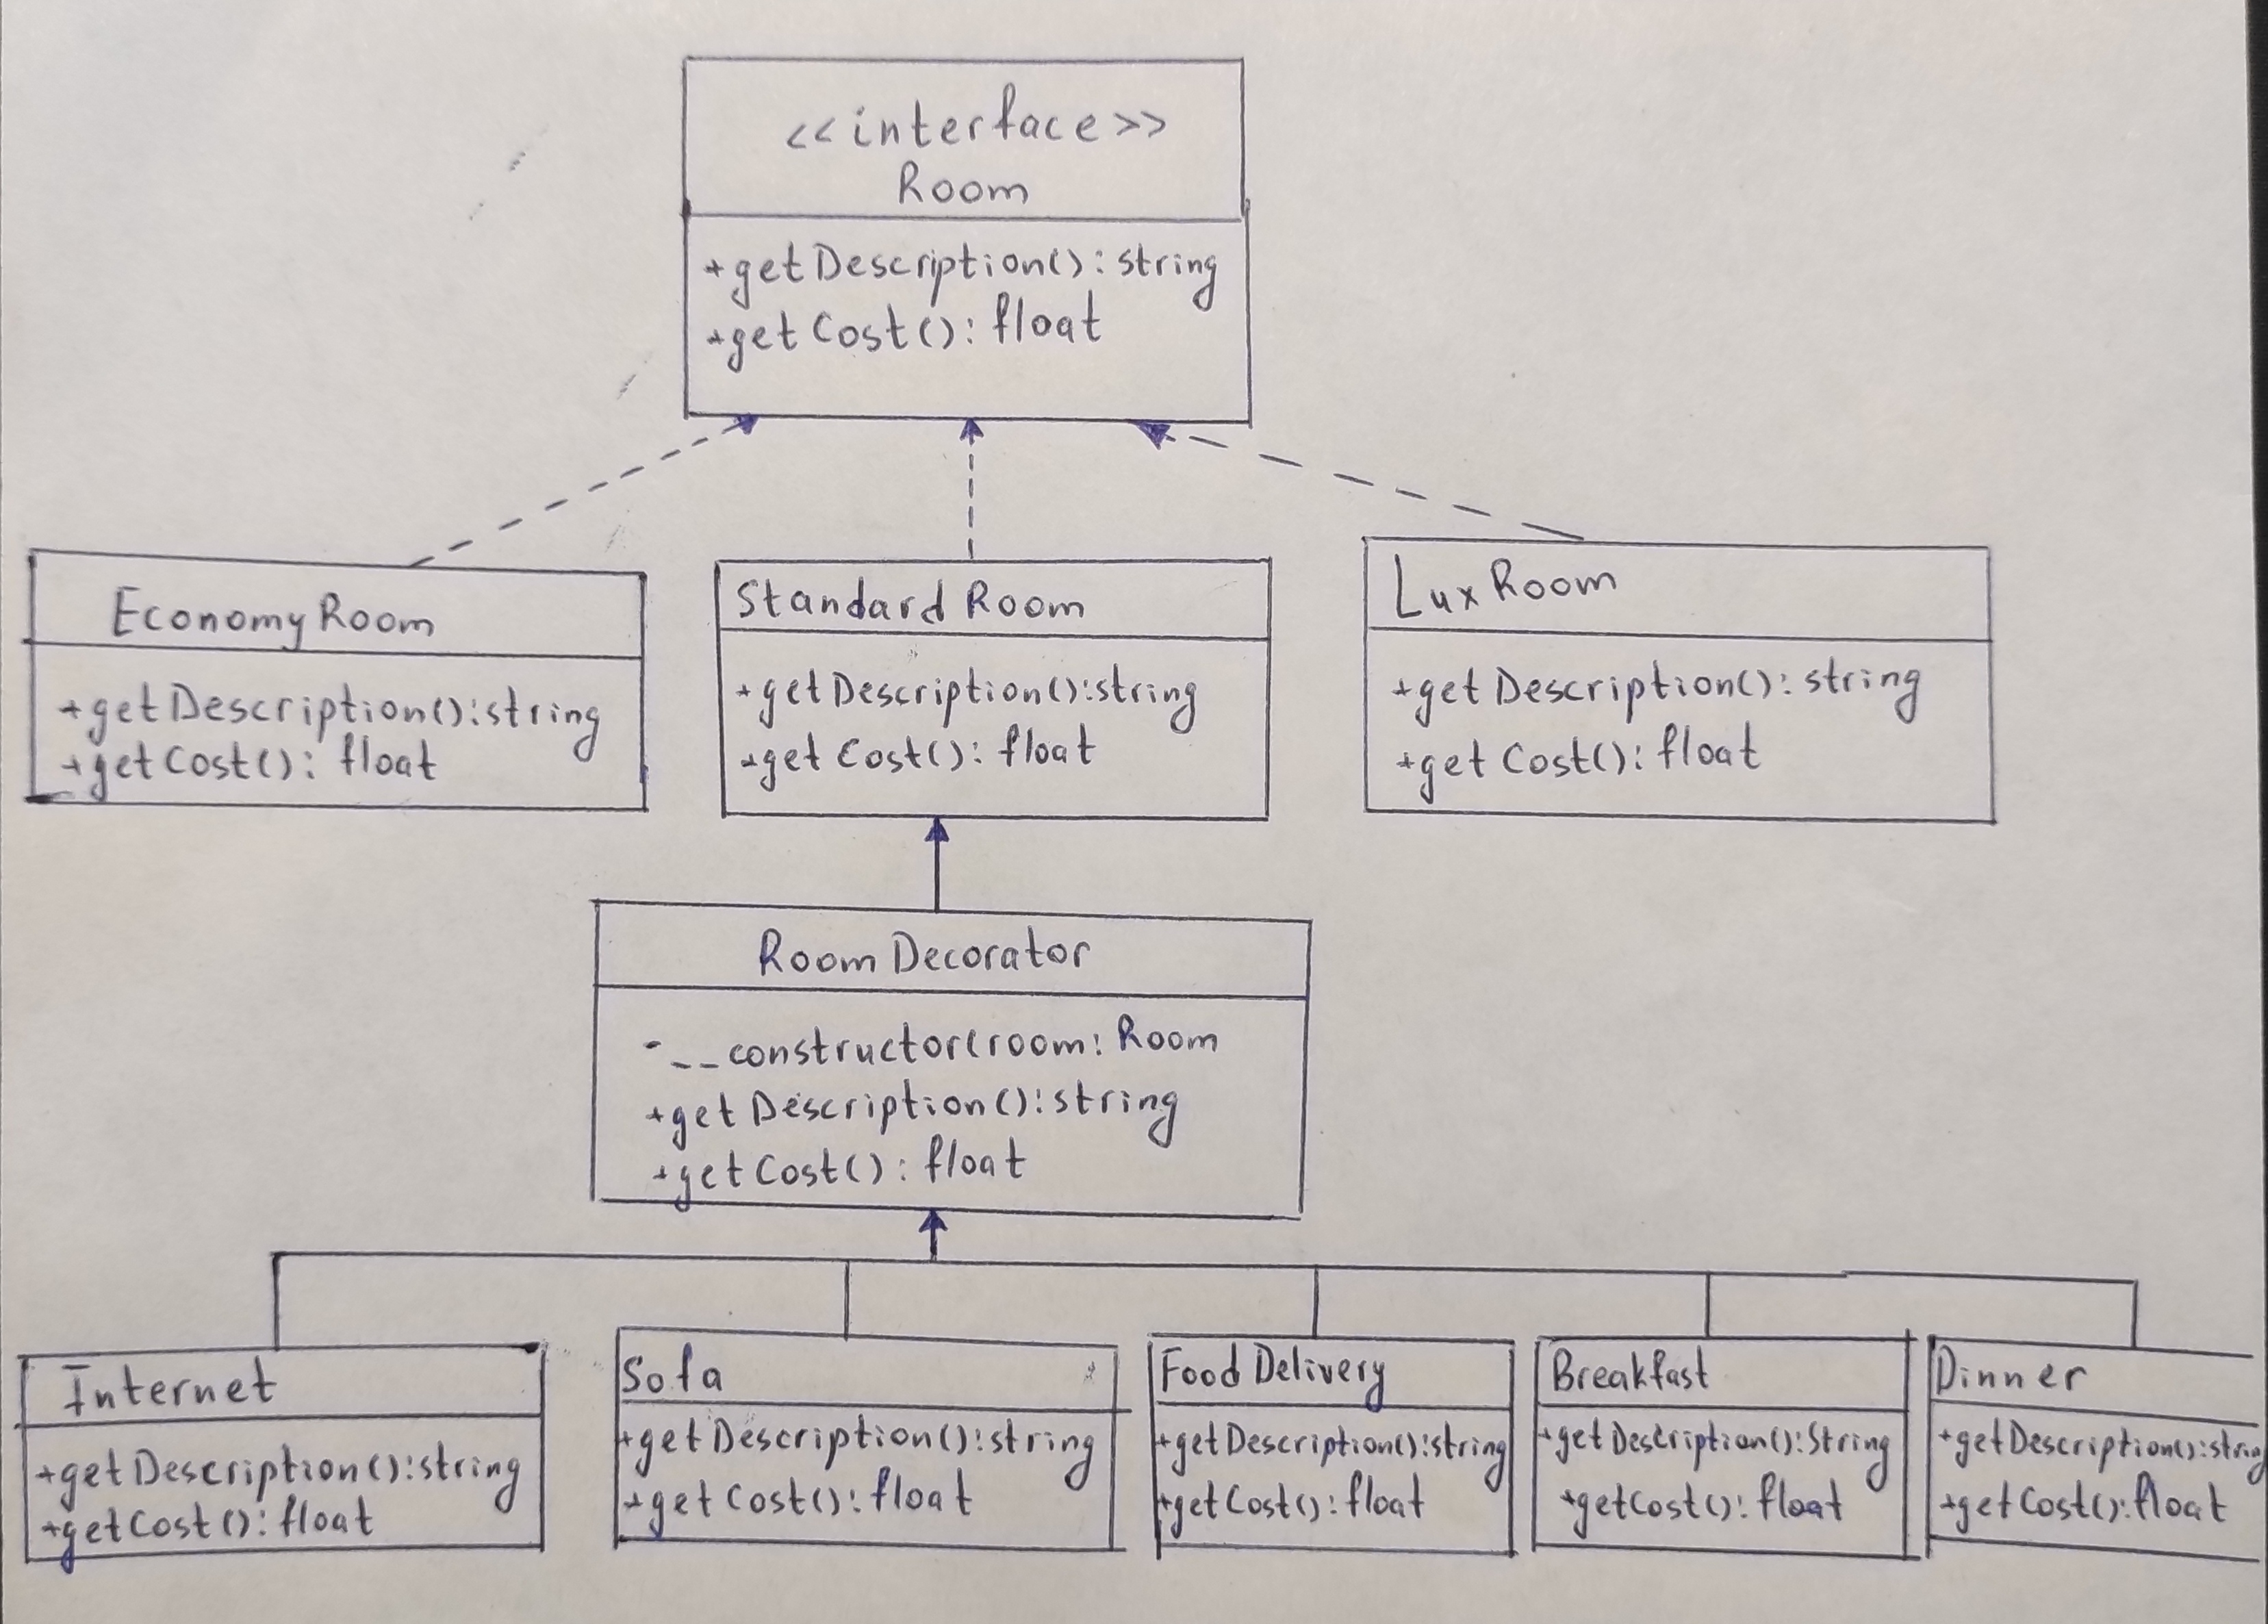 <<interface>>
Room
+getDescription(): string
+getCost(): float
EconomyRoom
+getDescription():string
+getCost(): float
Standard Room
+getDescription():string
+getCost(): float
LuxRoom
+getDescription(): string
+getCost(): float
Room Decorator
-__constructor(room: Room
+getDescription(): string
+getCost(): float
Internet
+getDescription():string
+getCost(): float
Sofa
+getDescription():string
+getCost(): float
Food Delivery
+getDescription():string
+getCost(): float
Breakfast
+getDescription():String
+getCost(): float
Dinner
+getDescription():string
+getCost():float